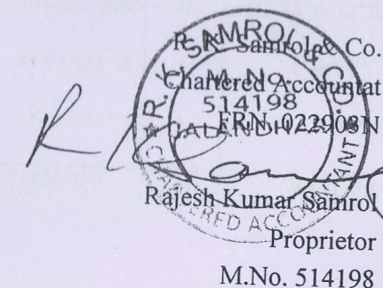 R. K. Samrol & Co.
Chartered Accountat
FRN. 022903N
R. K. SAMROL & CO.
M. No.
514198
JALANDHAR
CHARTERED ACCOUNTANT
Rajesh Kumar Samrol
Proprietor
M.No. 514198